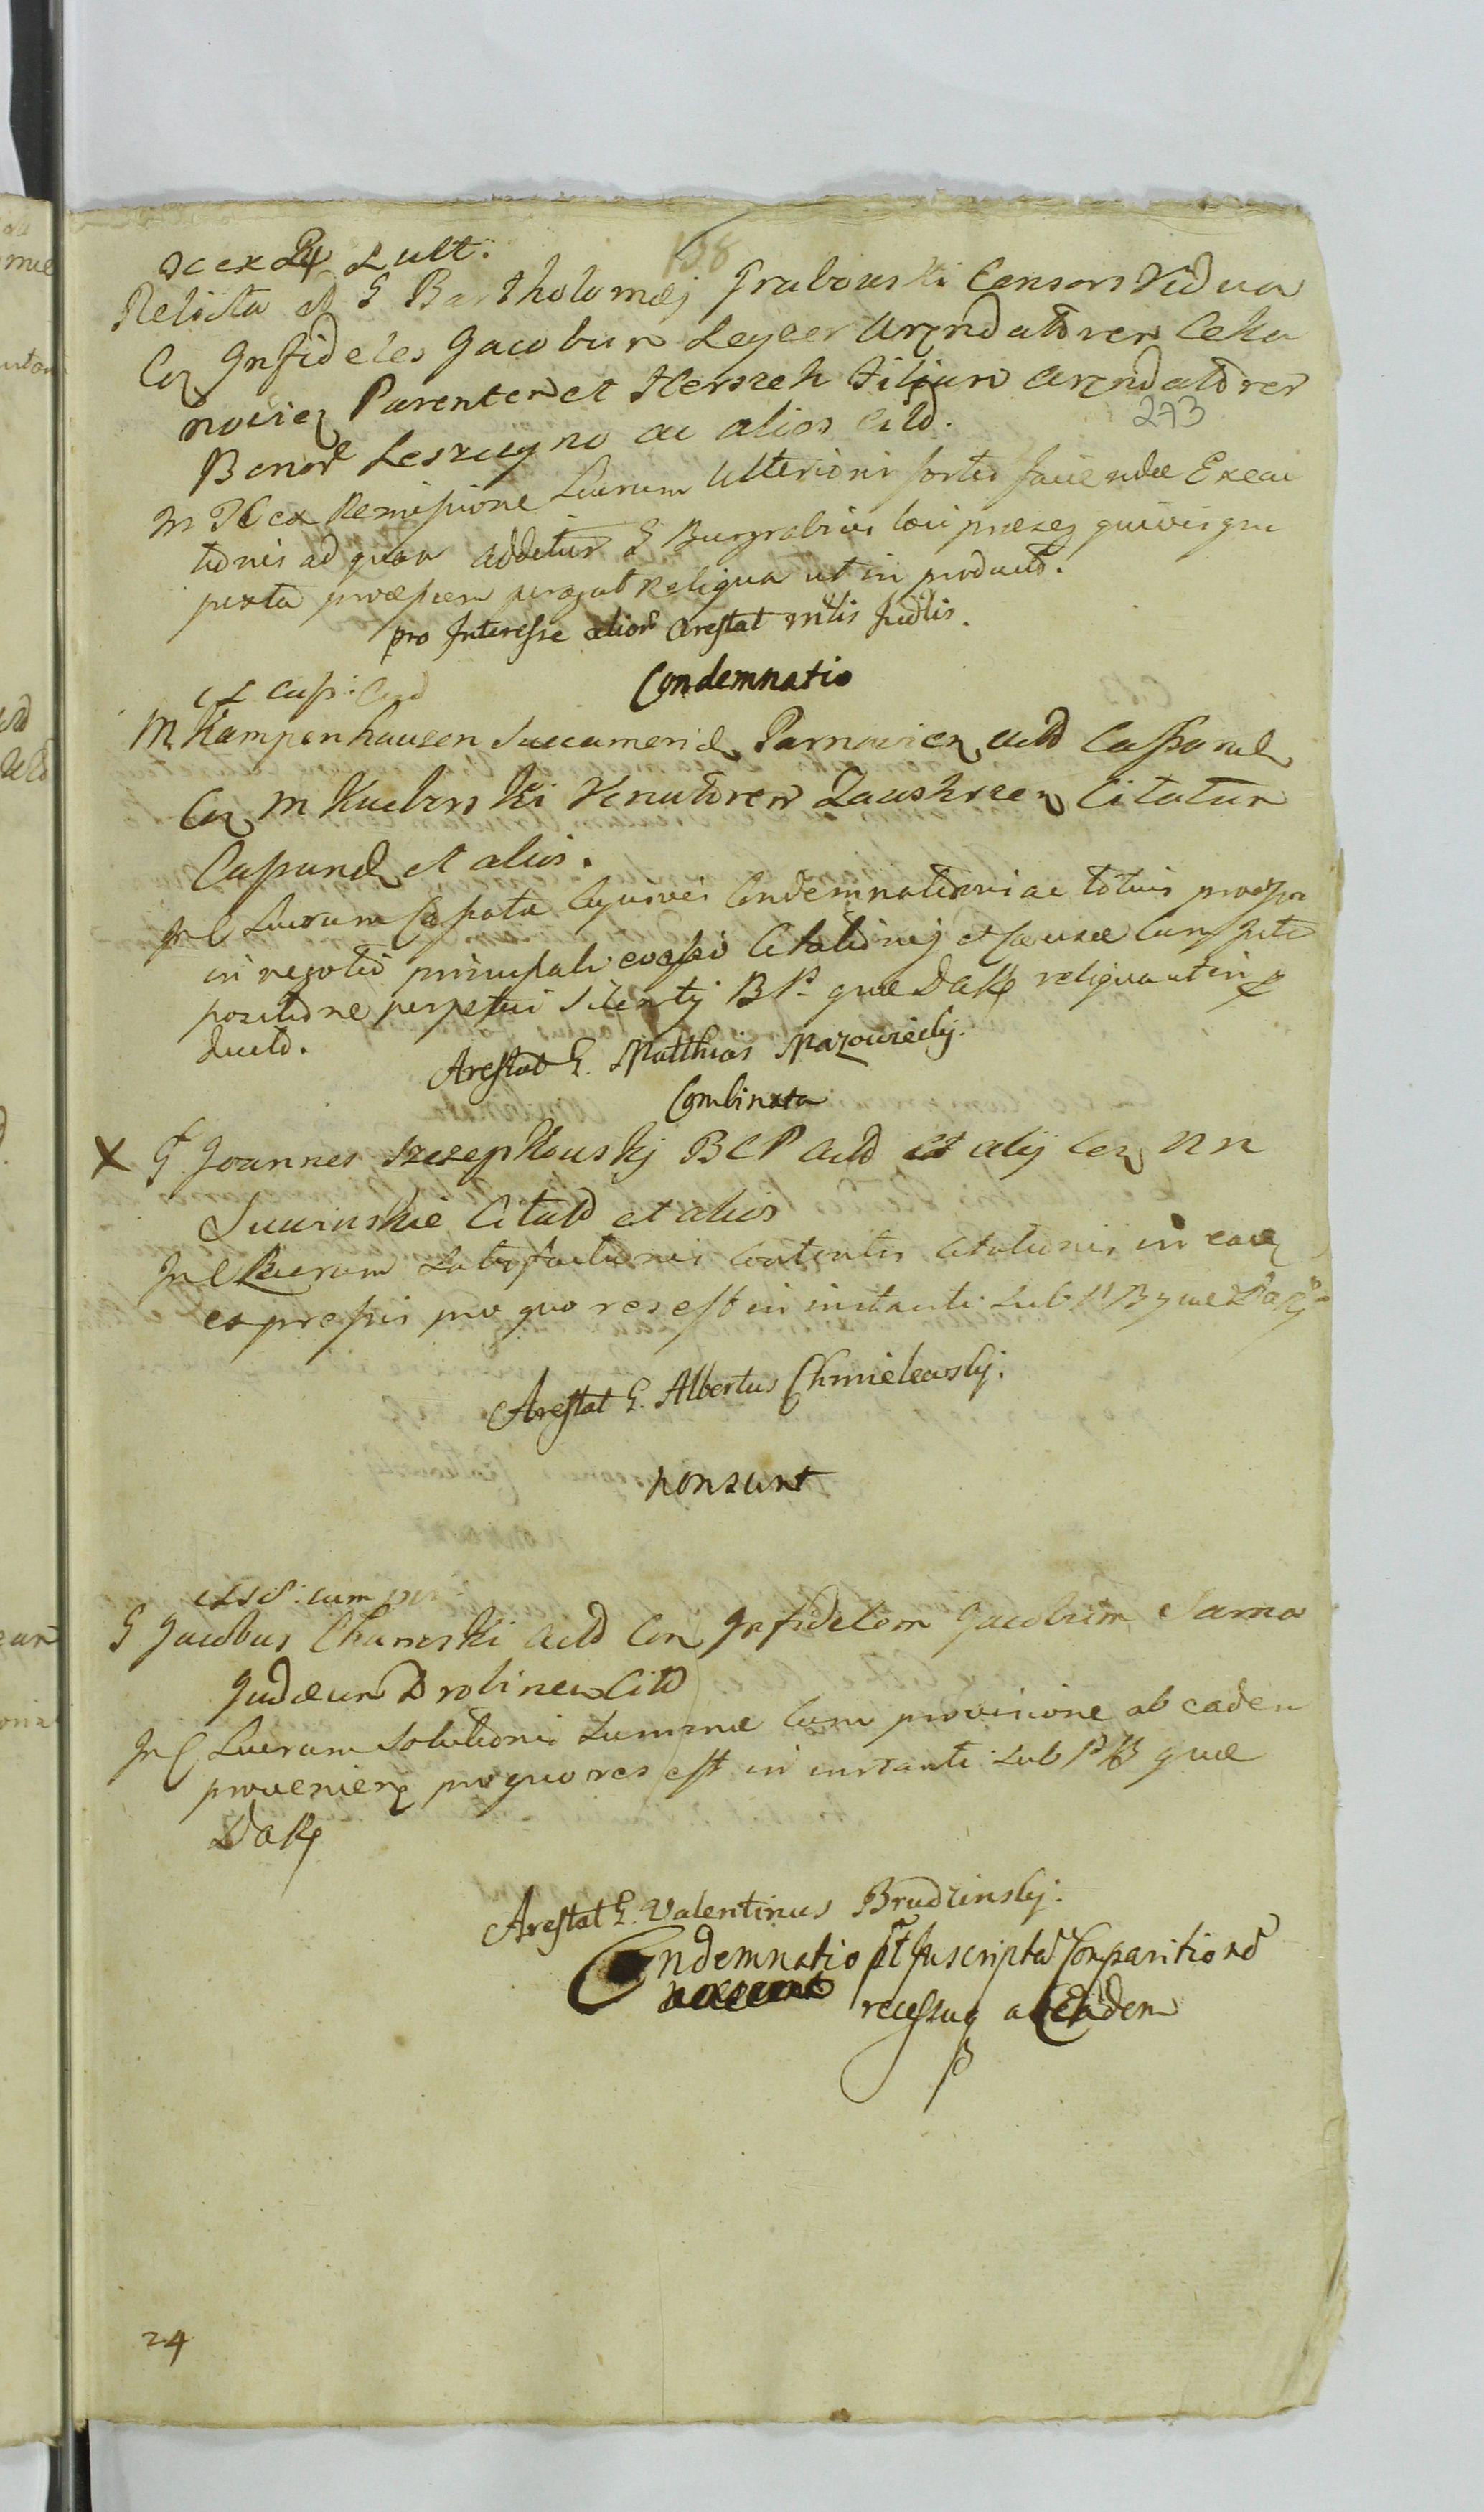 138
ac ex Rx d ult.
Relicta olt G Bartholomæj Grabowski Consors Vidua
Coñ Infideles Jacobum Leyzer Arendatorem Ceka
nowien Parentem et Herszek Filium Arendatorem
273
Bonor Leszczyno ac alios Citd.
In TC ex Remissione Lucrum Ulterioris fortio faciendæ Execu
tionis ad quam additur G Burgrabius loci præsens quivis qui
juxta præssem peragat reliqua ut in producto.
pro Interesse alior Arestat mtis Judtis.
Condemnatio
ex cass: Cond
M Kampenhausen Succamerid Parnavien Actd Cassand
Coñ M Kuczborski Venatorem Zauskrzen Citatum
Cassand et alios.
In C Lucrum Cassata cujusvis Condemnationis ac totius processus
in negotio principali evassio Citationis et causæ cum Inter
positione perpetui Silentij BP quæ DaRp reliqua ut in p
ducto.
Arestat G. Matthias Mazowiecky.
Combinata
X Gs Joannes Szczepkowskj BCP Actd et alij Coñ NN
Suwinskie Citatd et alios
In C Lucrum Satisfactionis Contentis Citationis in eaq
expressis pro quo res est in instanti sub PB quæ DaRp
Arestat G. Albertus Chmielewsky.
non sunt
ex scr: cum
G Jacobus Chanski Actd Coñ Infidelem Jacobum Sama
Judæum Drobinen Citd
In C Lucrum Solutionis Summæ cum provisione ab eadem
provenien pro quo res est in instanti sub PB quæ
DaRp
Arestat G. Valentinus Brudzinsky.
Condemnatio pt Inscripta Comparitione
recessuq ab Eadem
24